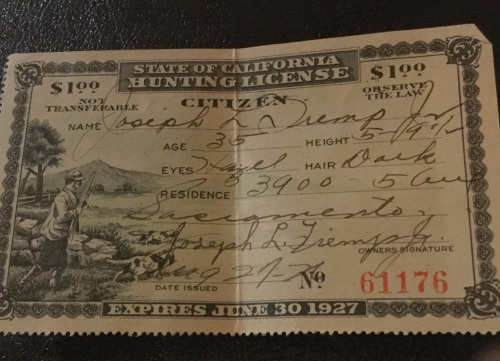 STATE OF CALIFORNIA
$1.00 HUNTING LICENSE $1.00
NOT TRANSFERABLE CITIZEN OBSERVE THE LAW
NAME Joseph L. Tremp Jr
AGE 35 HEIGHT 5/9½
EYES Hazel HAIR Dark
RESIDENCE 3900 - 5 Ave
Sacramento
Joseph L. Tremp Jr.
OWNERS SIGNATURE
DATE ISSUED Nº 61176
EXPIRES JUNE 30 1927